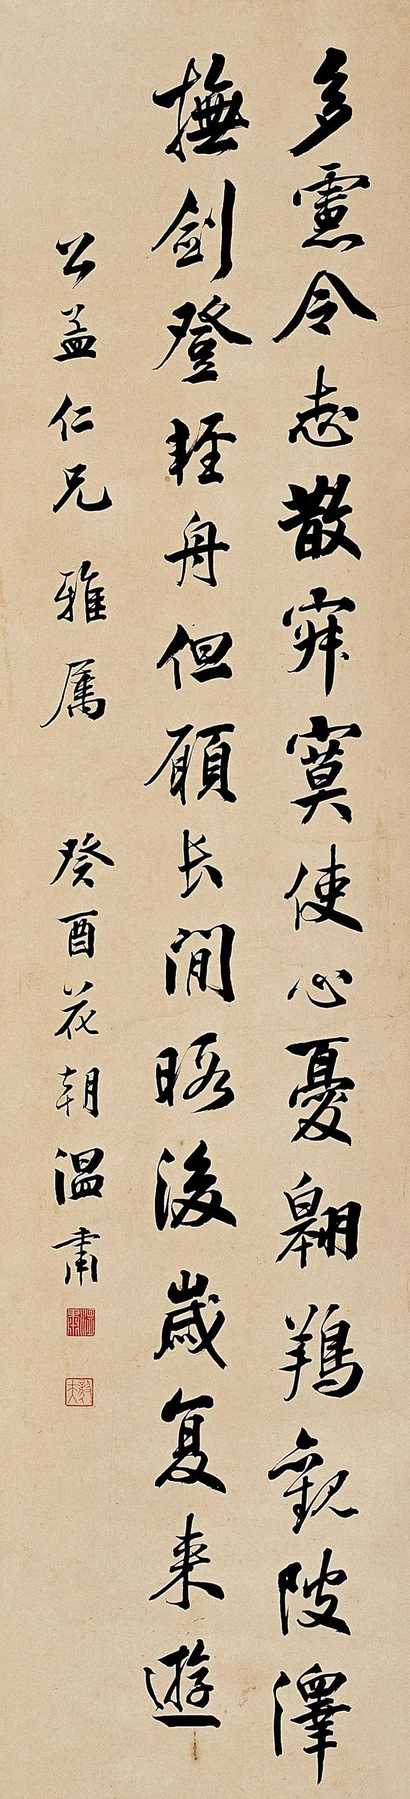 多慮令志散寂寞使心憂翱翔觀陂澤
撫劍登輕舟但願長閒暇後歲复来遊
公孟仁兄 雅屬 癸酉花朝溫肅
毅夫